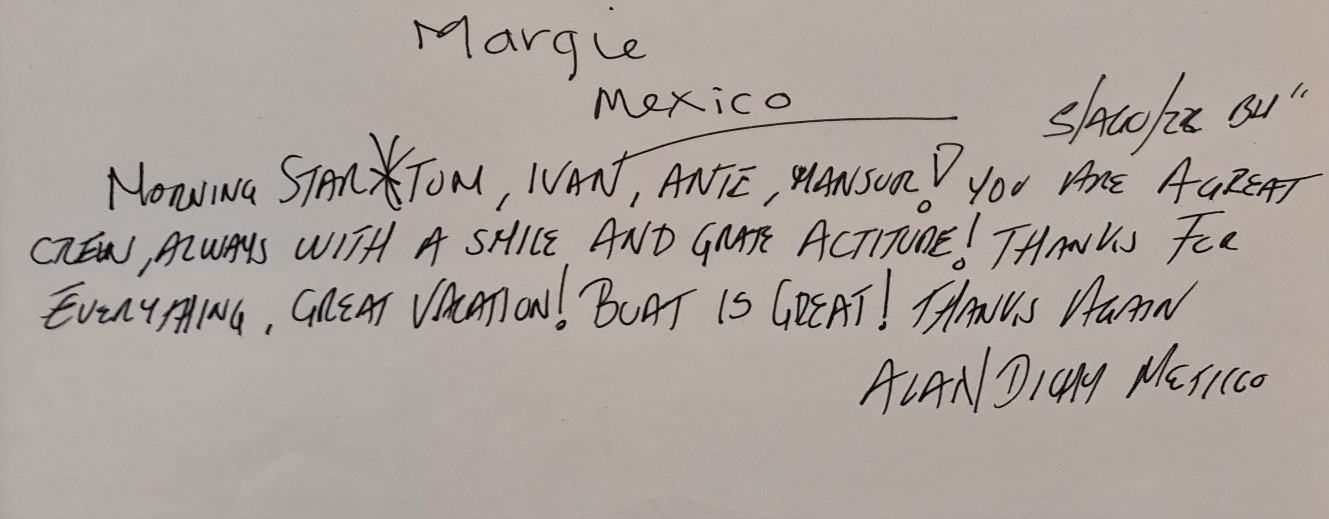 Margie
Mexico
5/AGO/22
MORNING STAR * TOM, IVAN, ANTE, MANSUR! YOU ARE A GREAT
CREW, ALWAYS WITH A SMILE AND GRATE ACTITUDE! THANKS FOR
EVERYTHING, GREAT VACATION! BOAT IS GREAT! THANKS AGAIN
ALAN/